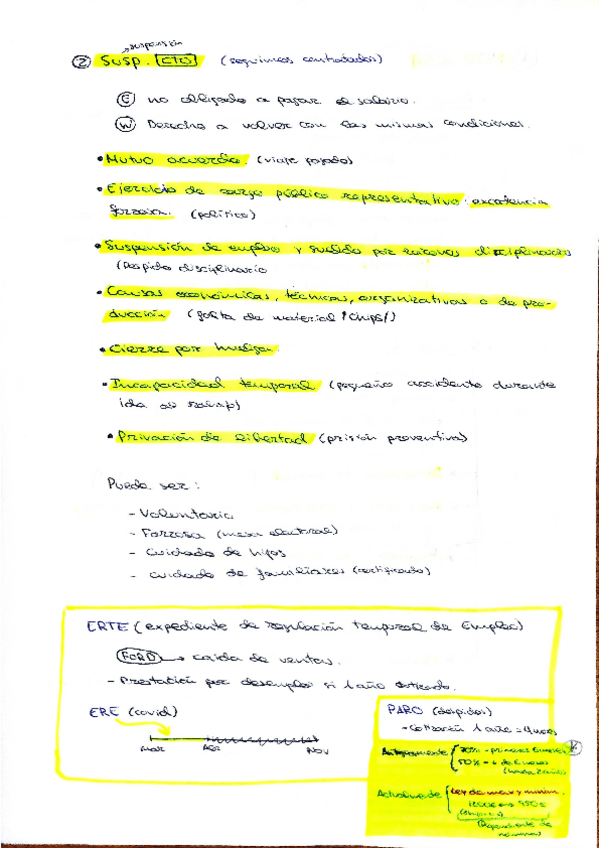 suspensión
② Susp. CTO (seguimos contratados)
Ⓔ no obligado a pagar el salario.
Ⓦ Derecho a volver con las mismas condiciones.
• Mutuo acuerdo. (viaje pagado)
• Ejercicio de cargo público representativo: excedencia
forzosa. (político)
• Suspensión de empleo y sueldo por razones disciplinarias
(Despido disciplinario
• Causas económicas, técnicas, organizativas o de pro-
ducción (falta de material /chips/)
• Cierre por huelga.
• Incapacidad temporal (pequeño accidente durante
ida al
• Privación de libertad (prisión preventiva)
Puede ser:
- Voluntaria
- Forzosa (mesa electoral)
- Cuidado de hijos
- cuidado de familiares (certificado)
ERTE (expediente de regulación temporal de Empleo)
FORD → caída de ventas.
- Prestación por desempleo si 1 año cotizado.
ERE (covid)
MAR ABR NOV
PARO (despidos)
- Cotización 1 año = 4 meses
Antiguamente 70% - primeros 6 meses
50% - + de 6 meses
(hasta 2 años)
Actualmente Ley de max y mínim.
1200€ 550€
(Dependiente de
nóminas)